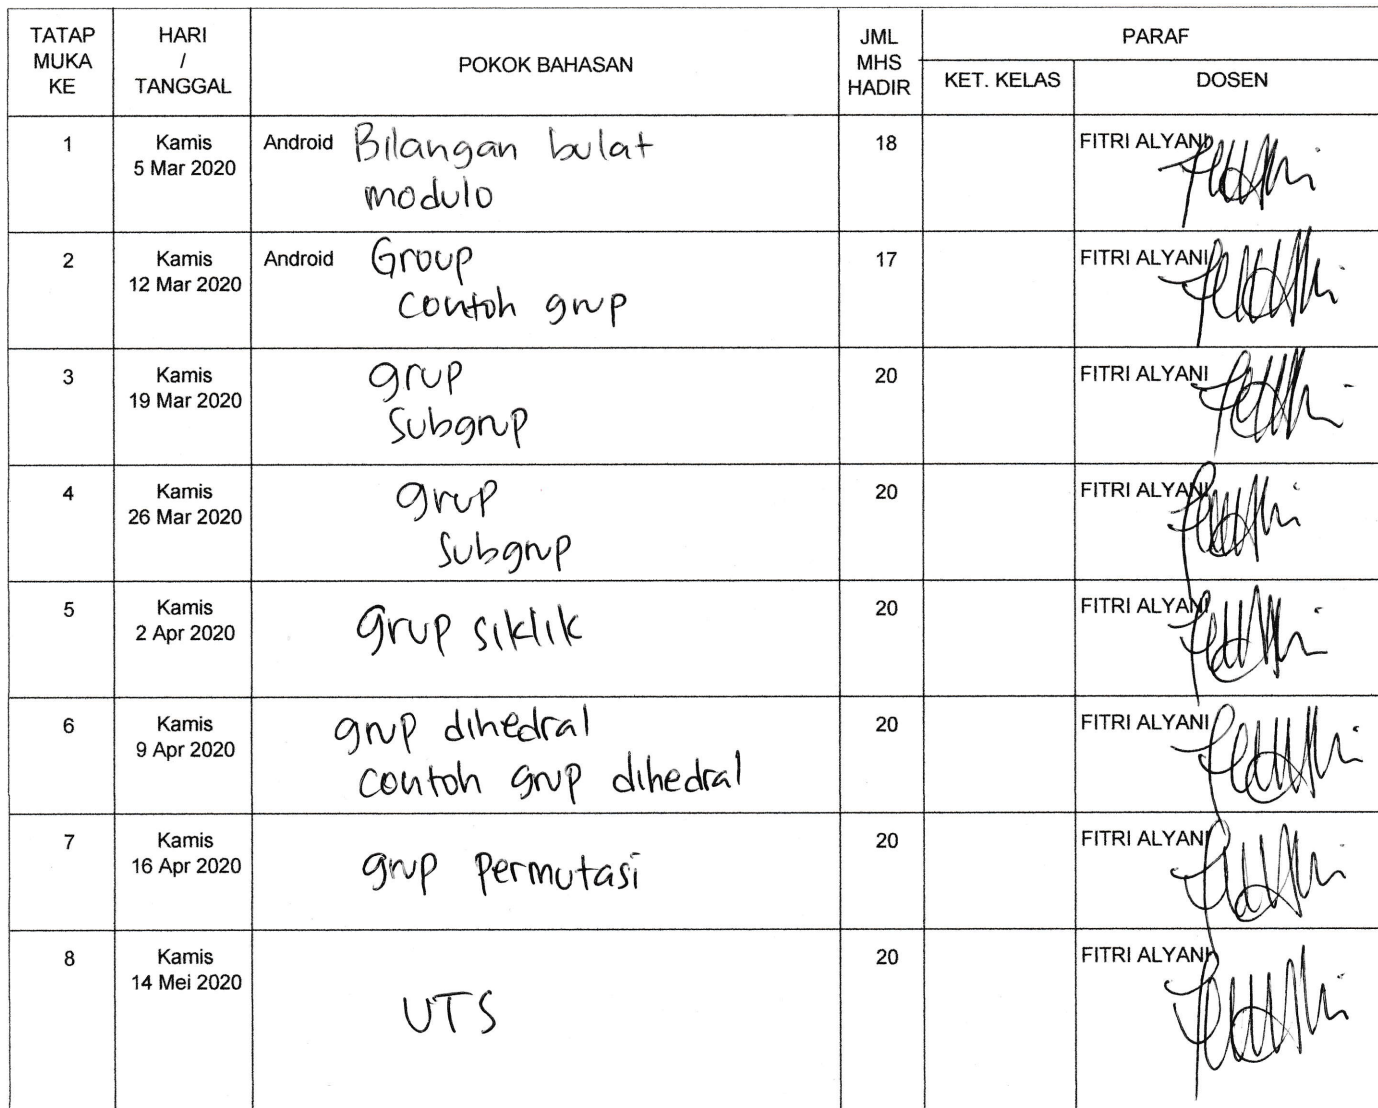 TATAP MUKA KE | HARI / TANGGAL | POKOK BAHASAN | JML MHS HADIR | PARAF
KET. KELAS | DOSEN
1 | Kamis 5 Mar 2020 | Android Bilangan bulat modulo | 18 | FITRI ALYANI
2 | Kamis 12 Mar 2020 | Android Group contoh grup | 17 | FITRI ALYANI
3 | Kamis 19 Mar 2020 | grup Subgrup | 20 | FITRI ALYANI
4 | Kamis 26 Mar 2020 | grup Subgrup | 20 | FITRI ALYANI
5 | Kamis 2 Apr 2020 | grup siklik | 20 | FITRI ALYANI
6 | Kamis 9 Apr 2020 | grup dihedral contoh grup dihedral | 20 | FITRI ALYANI
7 | Kamis 16 Apr 2020 | grup permutasi | 20 | FITRI ALYANI
8 | Kamis 14 Mei 2020 | UTS | 20 | FITRI ALYANI